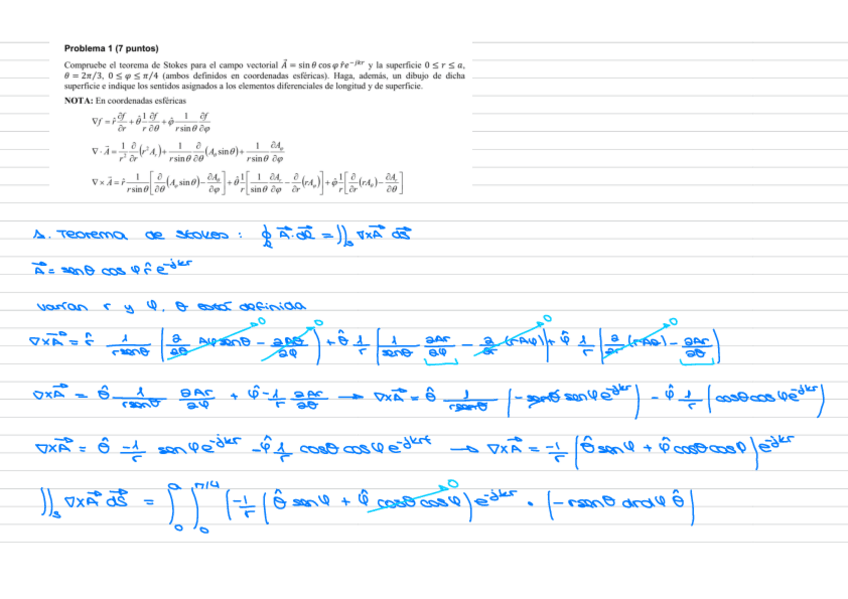 Problema 1 (7 puntos)
Compruebe el teorema de Stokes para el campo vectorial A⃗ = sin θ cos φ r̂e^{-jkr} y la superficie 0 ≤ r ≤ a,
θ = 2π/3, 0 ≤ φ ≤ π/4 (ambos definidos en coordenadas esféricas). Haga, además, un dibujo de dicha
superficie e indique los sentidos asignados a los elementos diferenciales de longitud y de superficie.
NOTA: En coordenadas esféricas
∇f = r̂ ∂f/∂r + θ̂ 1/r ∂f/∂θ + φ̂ 1/(r sin θ) ∂f/∂φ
∇ · A⃗ = 1/r² ∂/∂r (r² A_r) + 1/(r sin θ) ∂/∂θ (A_θ sin θ) + 1/(r sin θ) ∂A_φ/∂φ
∇ × A⃗ = r̂ 1/(r sin θ) [∂/∂θ (A_φ sin θ) − ∂A_θ/∂φ] + θ̂ 1/r [1/sin θ ∂A_r/∂φ − ∂/∂r (rA_φ)] + φ̂ 1/r [∂/∂r (rA_θ) − ∂A_r/∂θ]
1. Teorema de Stokes : ∮ A⃗ · dl⃗ = ∬_s ∇×A⃗ dS⃗
A⃗ = senθ cos φ r̂ e^{-jkr}
varían r y φ, θ está definida
∇×A⃗ = r̂ 1/(r senθ) (∂/∂θ Aφ senθ − ∂Aθ/∂φ) 0 + θ̂ 1/r [1/senθ ∂Ar/∂φ − ∂/∂r (rAφ)] 0 + φ̂ 1/r [∂/∂r (rAθ) 0 − ∂Ar/∂θ]
∇×A⃗ = θ̂ 1/(r senθ) ∂Ar/∂φ + φ̂ −1/r ∂Ar/∂θ → ∇×A⃗ = θ̂ 1/(r senθ) (−senθ senφ e^{-jkr}) − φ̂ 1/r (cosθ cos φ e^{-jkr})
∇×A⃗ = θ̂ −1/r senφ e^{-jkr} − φ̂ 1/r cosθ cos φ e^{-jkr} → ∇×A⃗ = −1/r (θ̂ senφ + φ̂ cosθ cosφ) e^{-jkr}
∬_s ∇×A⃗ dS⃗ = ∫_0^a ∫_0^{π/4} (−1/r (θ̂ senφ + φ̂ cosθ cosφ) 0 e^{-jkr} · (−r senθ dr dφ θ̂)